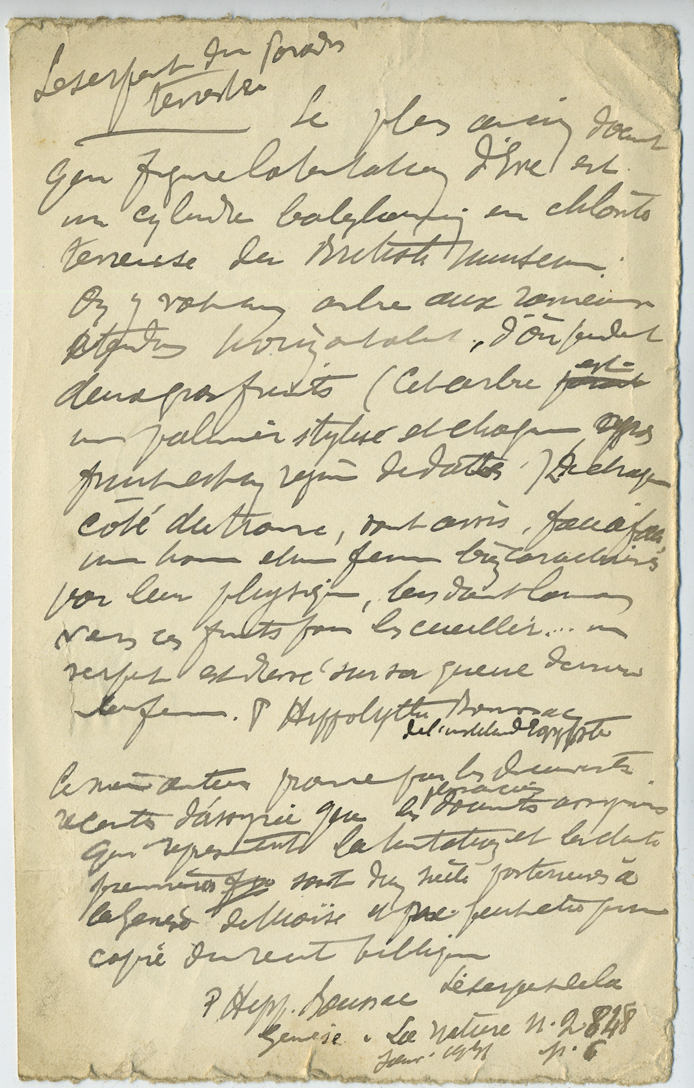 Le serpent du Paradis
terrestre
Le plus ancien docut
qui figure la tentation d'Eve est
un cylindre babylonien en chlorite
terreuse du British Museum.
On y voit un arbre aux rameaux
étendus horizontalet, d'où pendent
deux gros fruits (Cet arbre est
un palmier stylisé et chaque gros
fruit est un régime de dattes.) De chaque
côté du tronc, sont assis, face à face,
un homme et une femme bien caractérisés
par leur physique, tendant la main
vers ces fruits pour les cueillir... un
serpent est dressé sur sa queue derrière
la femme. P Hippolyte Boussac
de l'institut d'Egypte
Ce même auteur prouve par les découvertes
récentes d'assyrie que les documents assyriens
qui représentent la tentation et
premières sont des siècles postérieurs à
la Genèse de Moïse et peut être une
copie du récit biblique
P Hipp. Boussac Le serpent de la
Genèse. La Nature n. 2848
Janv. 1931 p. 6